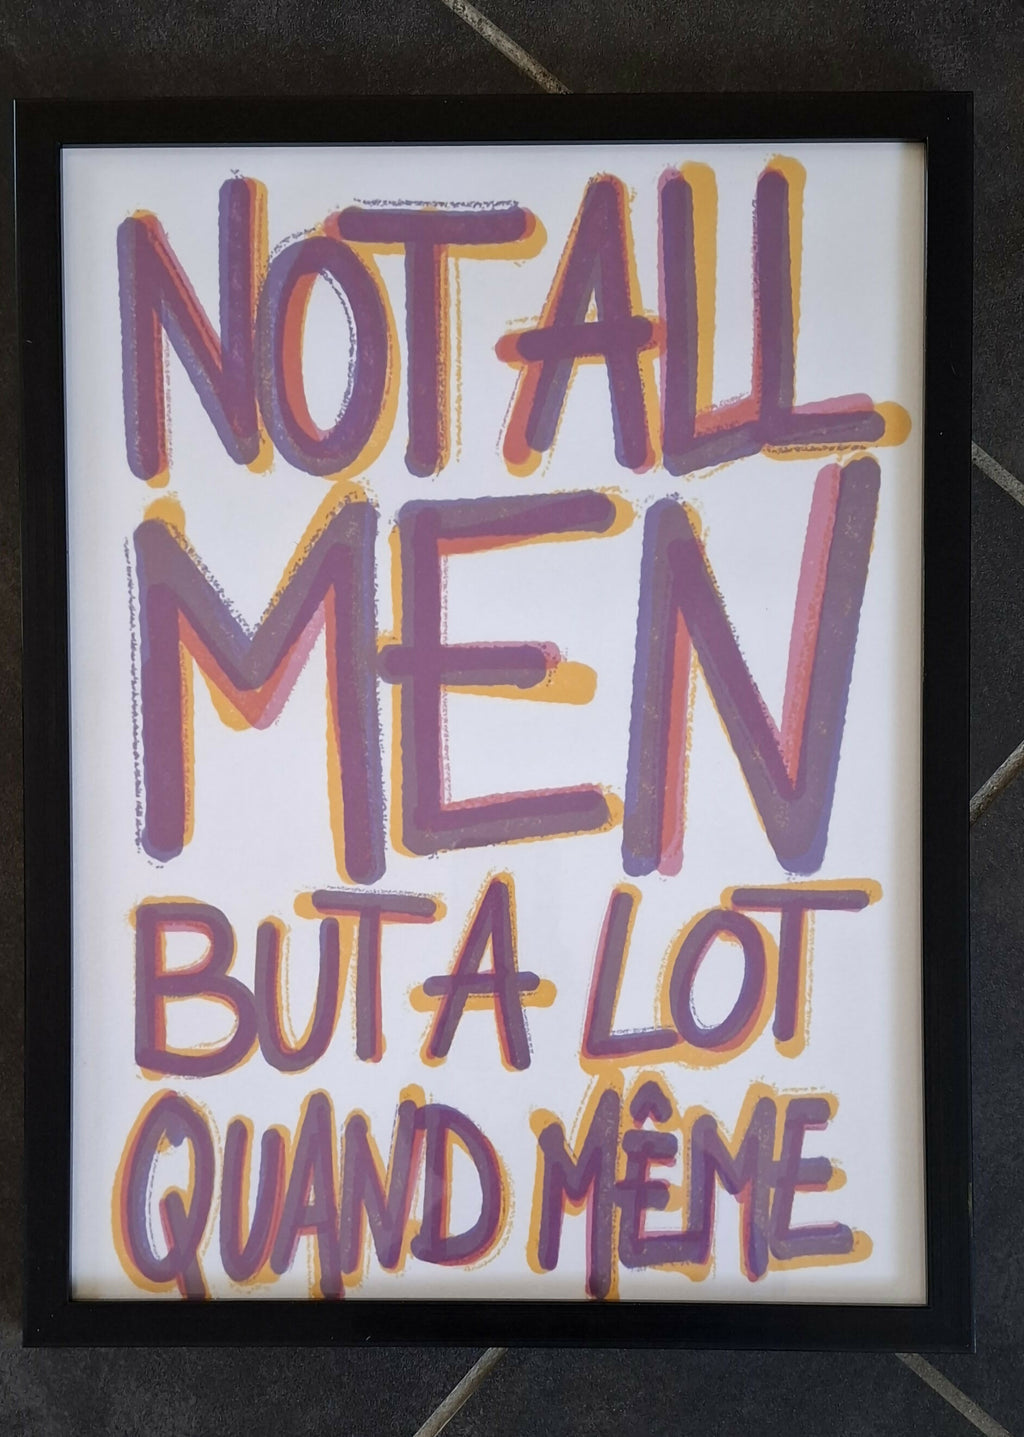 NOT ALL
MEN
BUT A LOT
QUAND MÊME